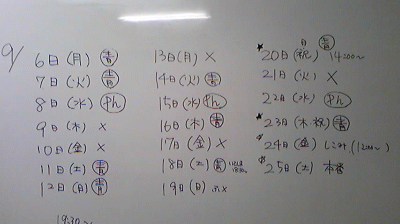 9/
6日(月) 青
7日(火) 青
8日(水) Ph
9日(木) ×
10日(金) ×
11日(土) 青
12日(日) 青
13日(月) ×
14日(火) 青
15日(水) Ph
16日(木) 青
17日(金) ×
18日(土) 青
19日(日)
★20日(月祝) 青 14:00〜
21日(火) ×
22日(水) Ph
★23日(木・祝) 青
24日(金) しこみ(12:00〜)
25日(土) 本番
19:30〜